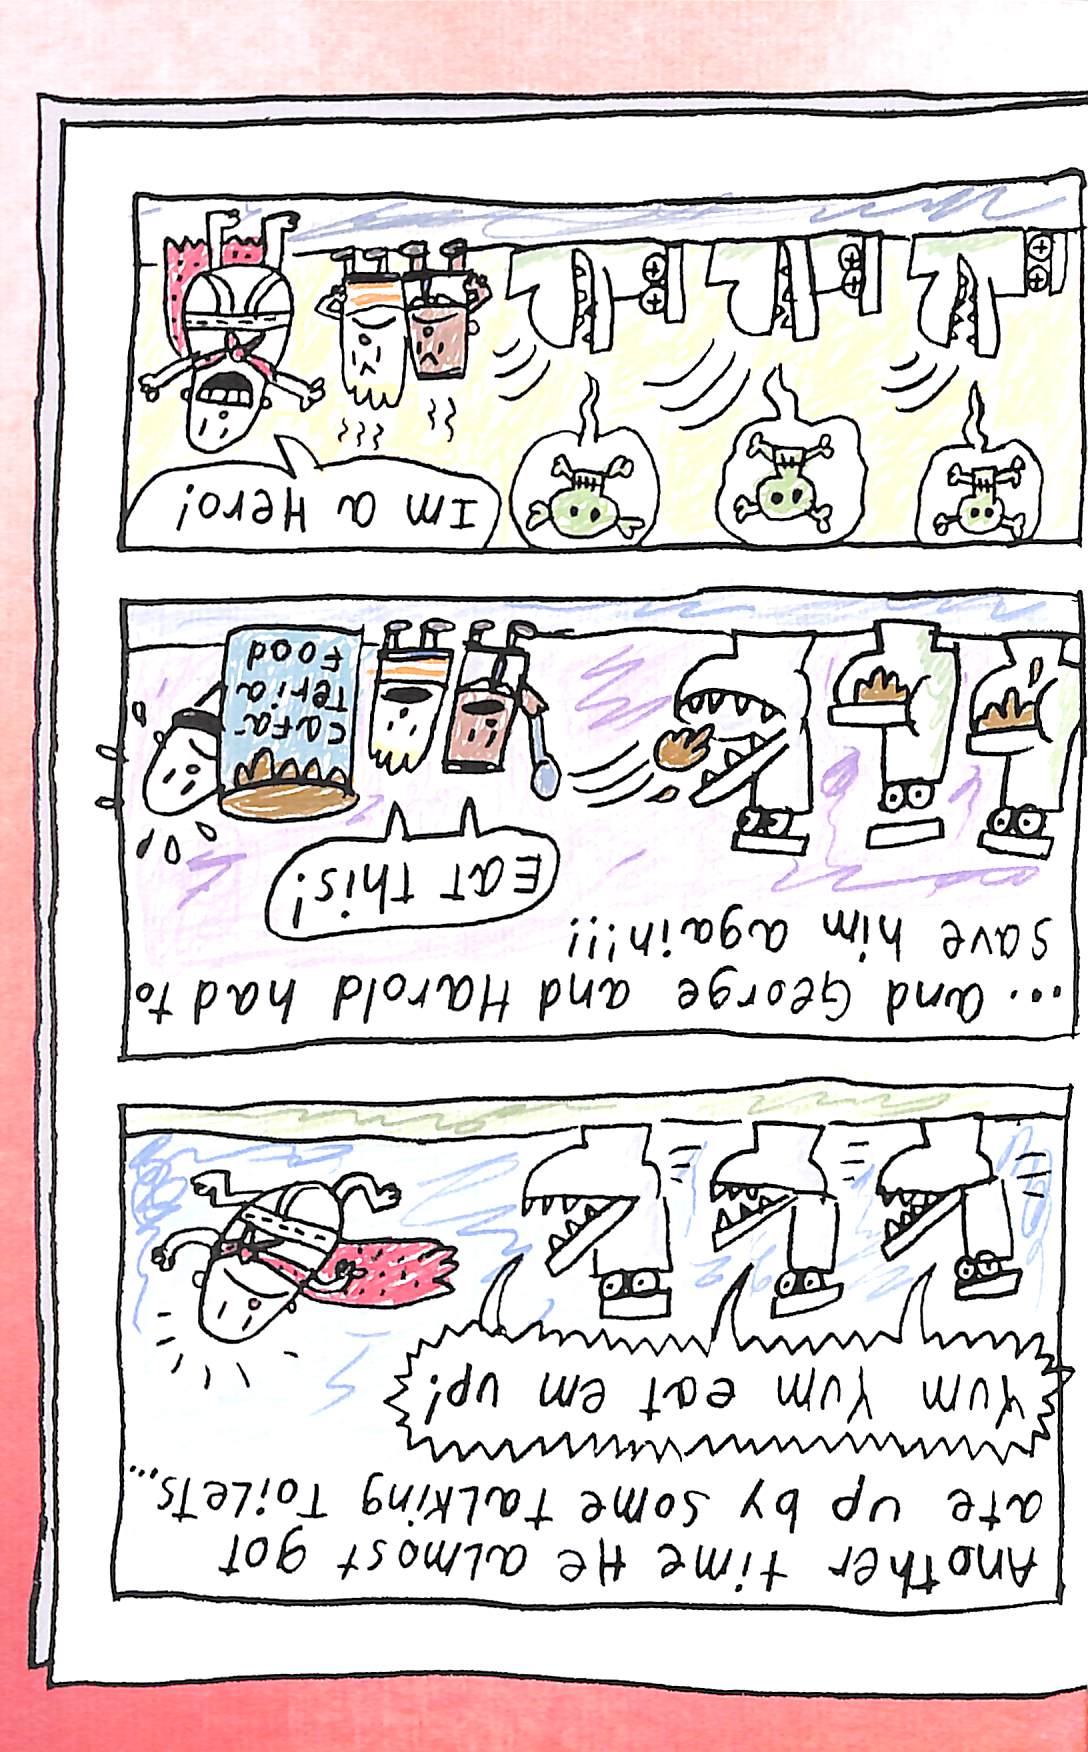 Another time He almost got
ate up by some talking Toilets...
Yum Yum eat em up!
... and George and Harold had to
save him again!!!
Eat this!
Cafa-
Teria
Food
Im a Hero!